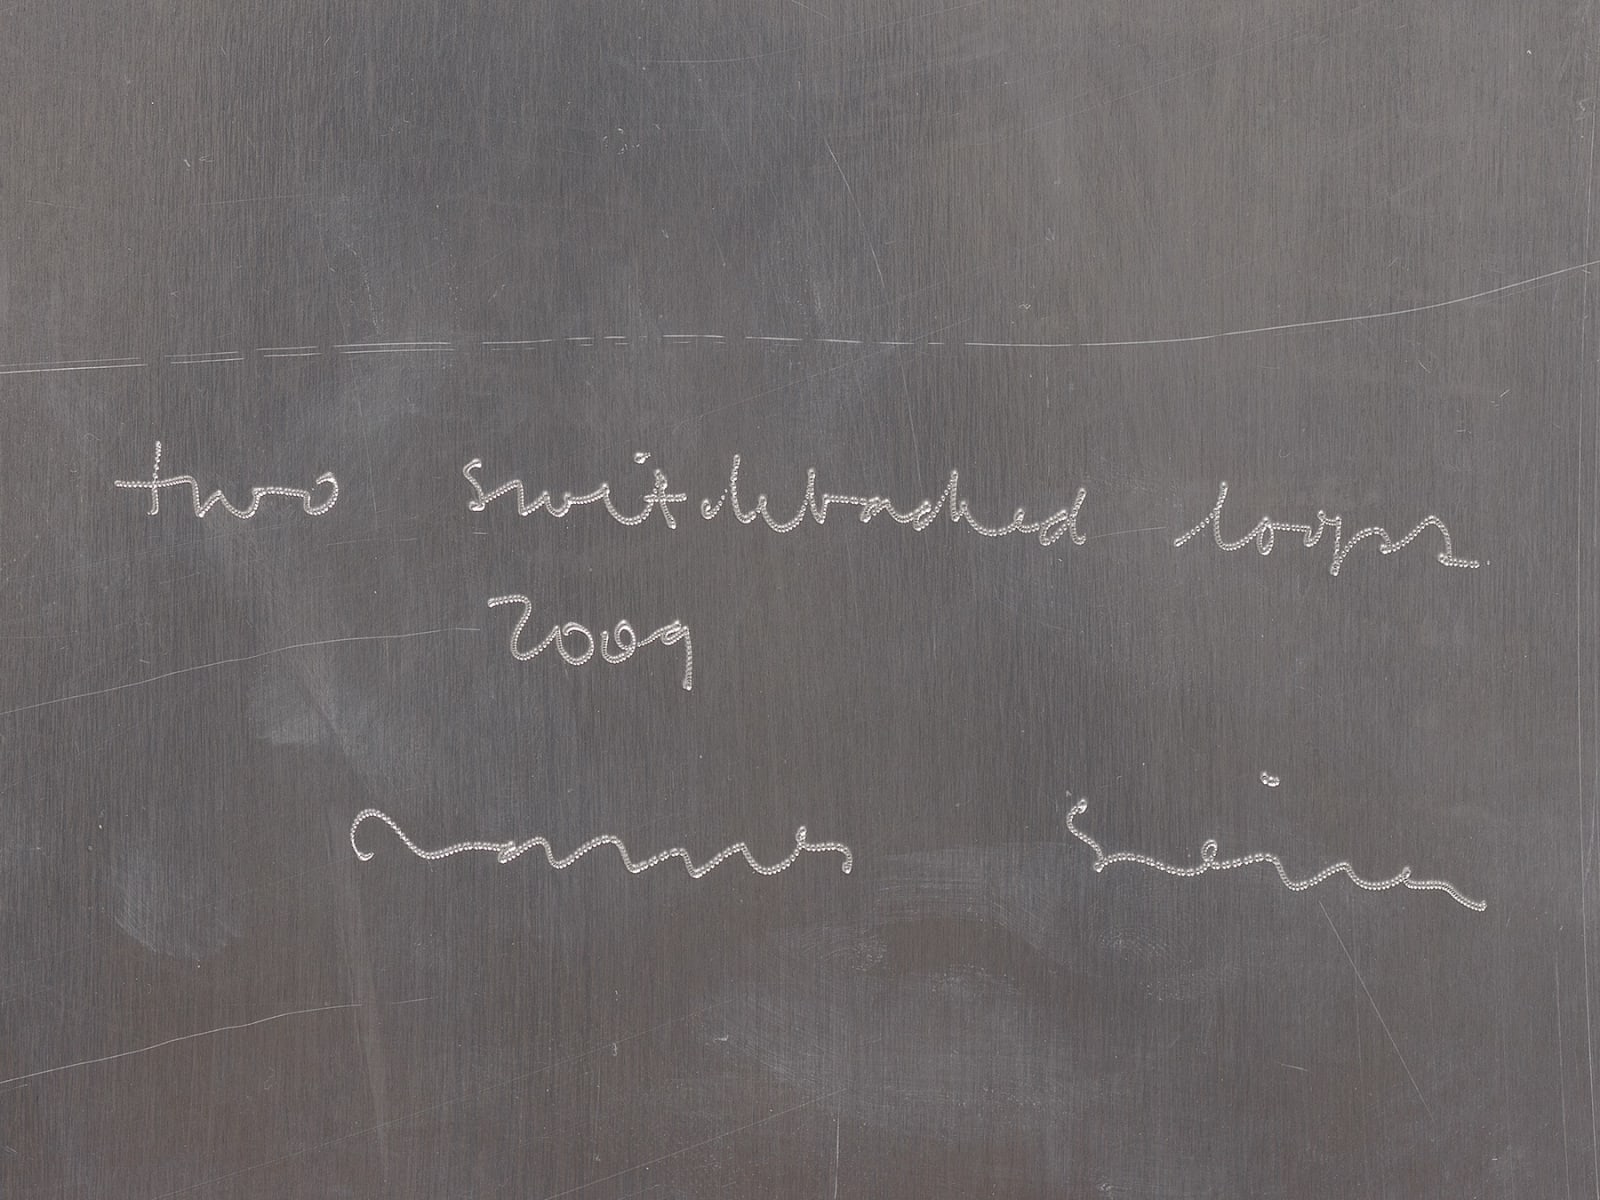 two switchbacked loops
2009